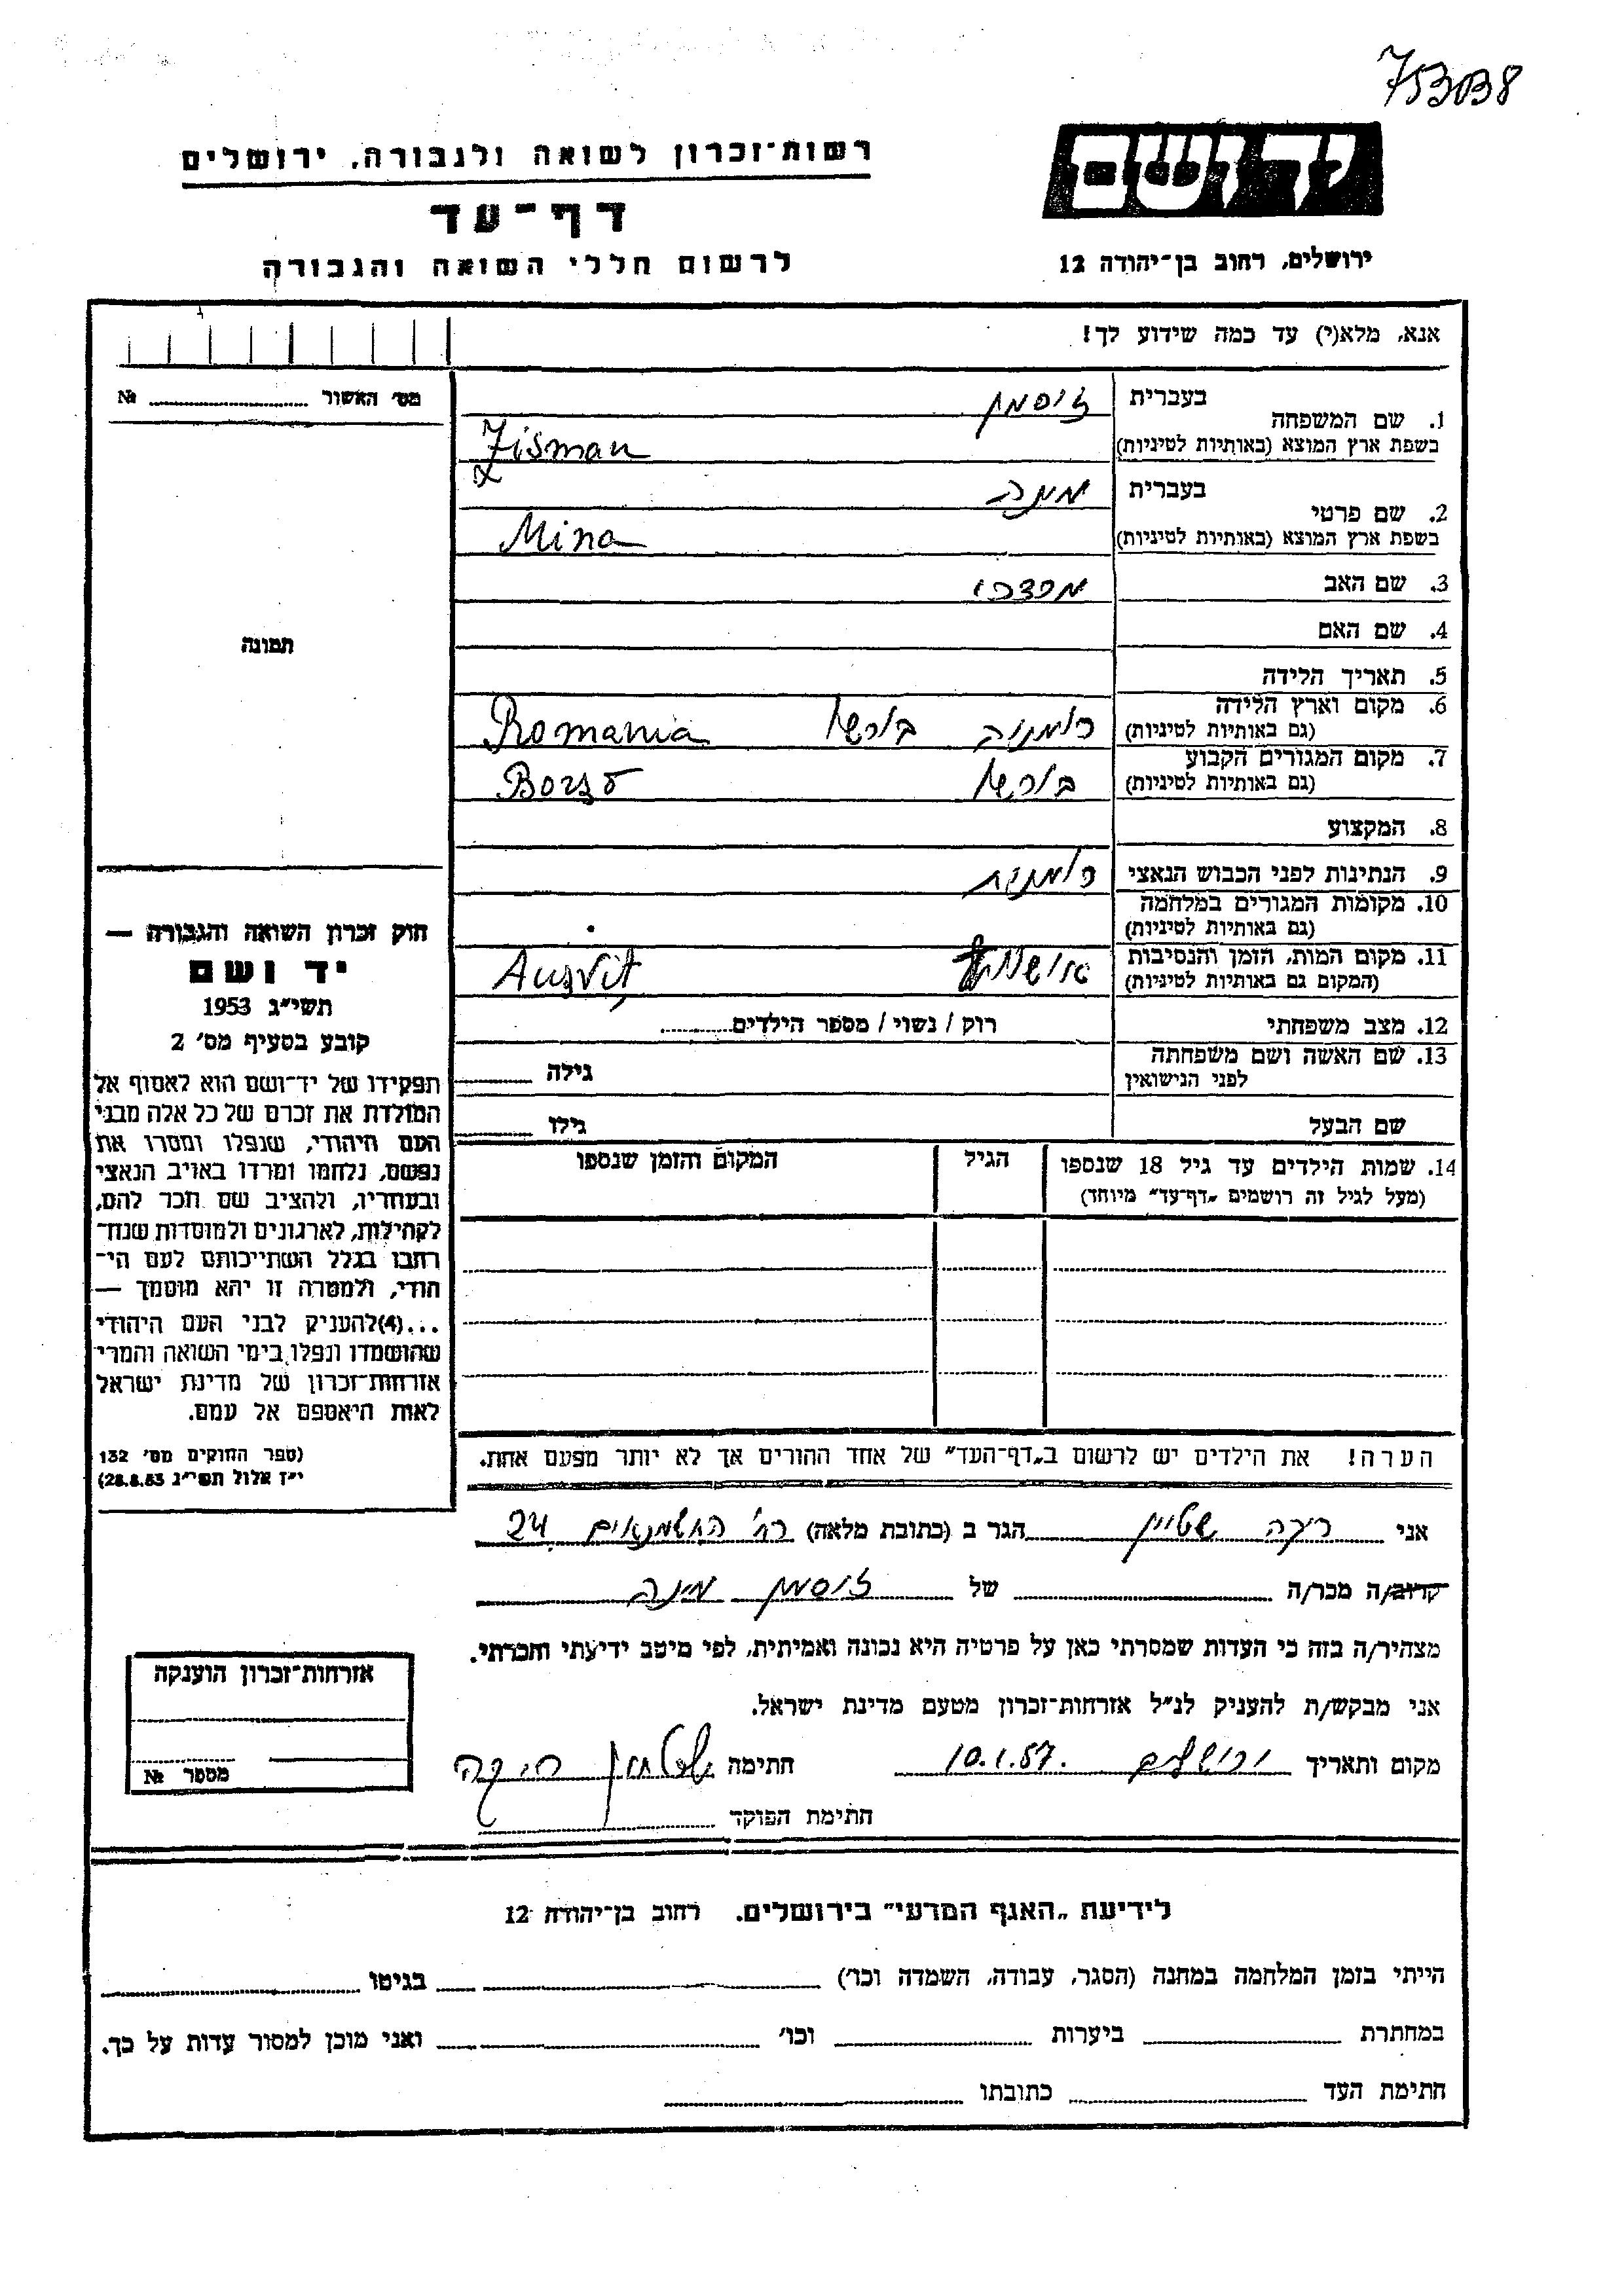 753038
יד ושם
רשות־זכרון לשואה ולגבורה, ירושלים
דף־עד
לרשום חללי השואה והגבורה
ירושלים, רחוב בן־יהודה 12
אנא, מלא(י) עד כמה שידוע לך!
מס׳ האשור № 
1. שם המשפחה בעברית זיסמן
בשפת ארץ המוצא (באותיות לטיניות) Zisman
2. שם פרטי בעברית מינה
בשפת ארץ המוצא (באותיות לטיניות) Mina
3. שם האב מרדכי
4. שם האם
5. תאריך הלידה
6. מקום וארץ הלידה (גם באותיות לטיניות) רומניה בורשו Romania
7. מקום המגורים הקבוע (גם באותיות לטיניות) בורשו Borso
8. המקצוע
9. הנתינות לפני הכבוש הנאצי רומנית
10. מקומות המגורים במלחמה (גם באותיות לטיניות)
11. מקום המות, הזמן והנסיבות (המקום גם באותיות לטיניות) Auzvitz
12. מצב משפחתי רוק / נשוי / מספר הילדים
13. שם האשה ושם משפחתה לפני הנישואין גילה
שם הבעל גילו
14. שמות הילדים עד גיל 18 שנספו הגיל המקום והזמן שנספו
(מעל לגיל זה רושמים „דף־עד״ מיוחד)
תמונה
חוק זכרון השואה והגבורה —
יד ושם
תשי״ג 1953
קובע בסעיף מס׳ 2
תפקידו של יד־ושם הוא לאסוף אל
המולדת את זכרם של כל אלה מבני
העם היהודי, שנפלו ומסרו את
נפשם, נלחמו ומרדו באויב הנאצי
ובעוזריו, ולהציב שם וזכר להם,
לקהילות, לארגונים ולמוסדות שנח־
רבו בגלל השתייכותם לעם הי־
הודי, ולמטרה זו יהא מוסמך —
...(4)להעניק לבני העם היהודי
שהושמדו ונפלו בימי השואה והמרי
אזרחות־זכרון של מדינת ישראל
לאות היאספם אל עמם.
(ספר החוקים מס׳ 132
י״ז אלול תשי״ג 28.8.53)
הערה! את הילדים יש לרשום ב„דף־העד״ של אחד ההורים אך לא יותר מפעם אחת.
אני ריקה שטיין הגר ב (כתובת מלאה) רח׳ החשמונאים 24
קרוב/ה מכר/ה של זיסמן מינה
מצהיר/ה בזה כי העדות שמסרתי כאן על פרטיה היא נכונה ואמיתית, לפי מיטב ידיעתי והכרתי.
אני מבקש/ת להעניק לנ״ל אזרחות־זכרון מטעם מדינת ישראל.
מקום ותאריך ירושלים 10.1.57. חתימה שטיין ריקה
חתימת הפוקד
אזרחות־זכרון הוענקה
מספר №
לידיעת „האגף המדעי״ בירושלים. רחוב בן־יהודה 12
הייתי בזמן המלחמה במחנה (הסגר, עבודה, השמדה וכו׳) בגיטו
במחתרת ביערות וכו׳ ואני מוכן למסור עדות על כך.
חתימת העד כתובתו